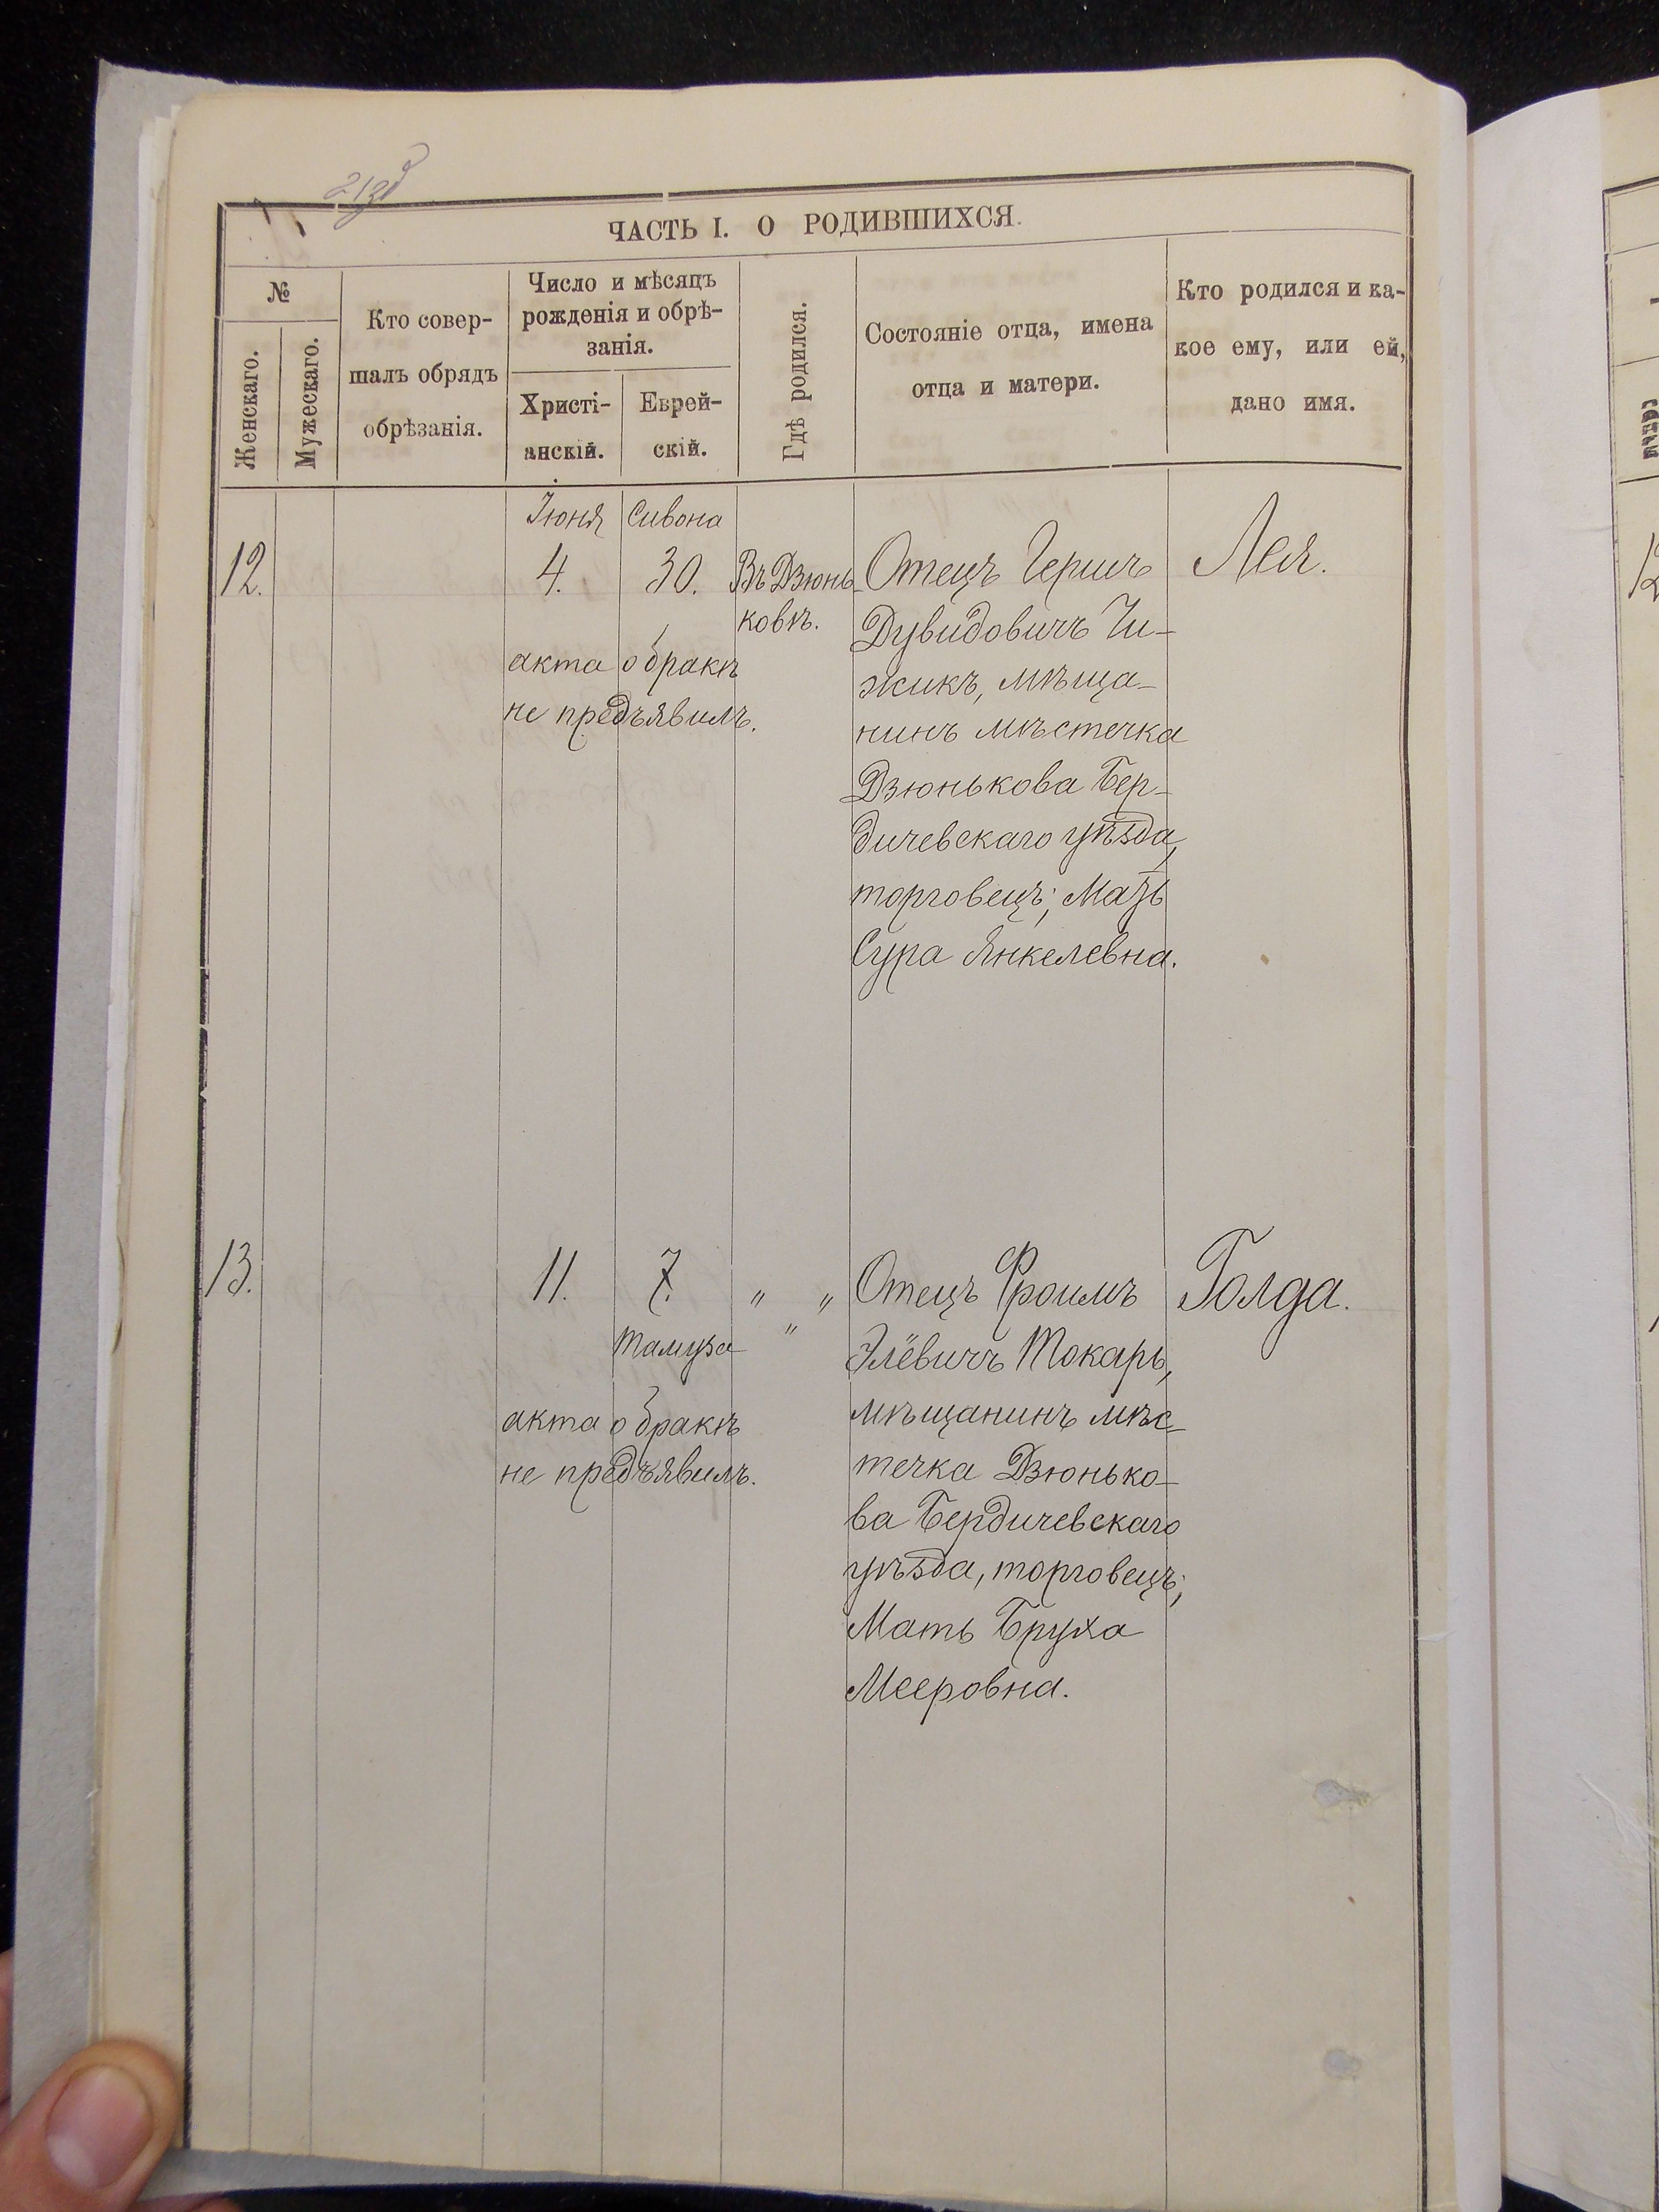 213об
ЧАСТЬ I. О РОДИВШИХСЯ.
№
Женскаго.
Мужескаго.
Кто совер-
шалъ обрядъ
обрѣзанія.
Число и мѣсяцъ
рожденія и обрѣ-
занія.
Христі-
анскій.
Еврей-
скій.
Гдѣ родился.
Состояніе отца, имена
отца и матери.
Кто родился и ка-
кое ему, или ей,
дано имя.
Іюня Сивона
12. 4. 30. Въ Дзюнь-
ковѣ.
акта о бракѣ
не предъявилъ.
Отецъ Гершъ
Дувидовичъ Чи-
жикъ, мѣща-
нинъ мѣстечка
Дзюнькова Бер-
дичевскаго уѣзда,
торговецъ; Мать
Сура Янкелевна.
Лея.
13. 11. 7. " " "
Тамуза
акта о бракѣ
не предъявилъ.
Отецъ Фроимъ
Элёвичъ Токарь,
мѣщанинъ мѣс-
течка Дзюнько-
ва Бердичевскаго
уѣзда, торговецъ;
Мать Бруха
Мееровна.
Голда.